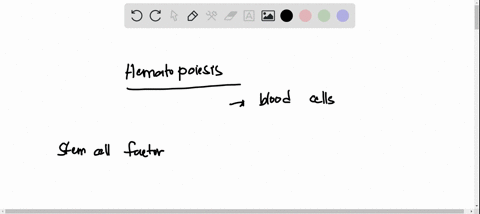 Hematopoiesis
→ blood cells
Stem cell factor